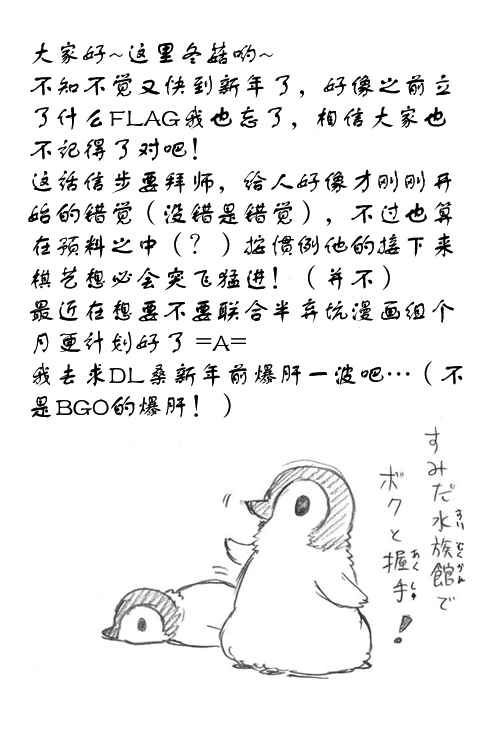 大家好~这里冬菇哟~
不知不觉又快到新年了，好像之前立
了什么FLAG我也忘了，相信大家也
不记得了对吧！
这话信步要拜师，给人好像才刚刚开
始的错觉（没错是错觉），不过也算
在预料之中（？）按惯例他的接下来
棋艺想必会突飞猛进！（并不）
最近在想要不要联合半弃坑漫画组个
月更计划好了 =A=
我去求DL桑新年前爆肝一波吧…（不
是BGO的爆肝！）
すみだ水族館で
すいぞくかん
ボクと握手！
あくしゅ